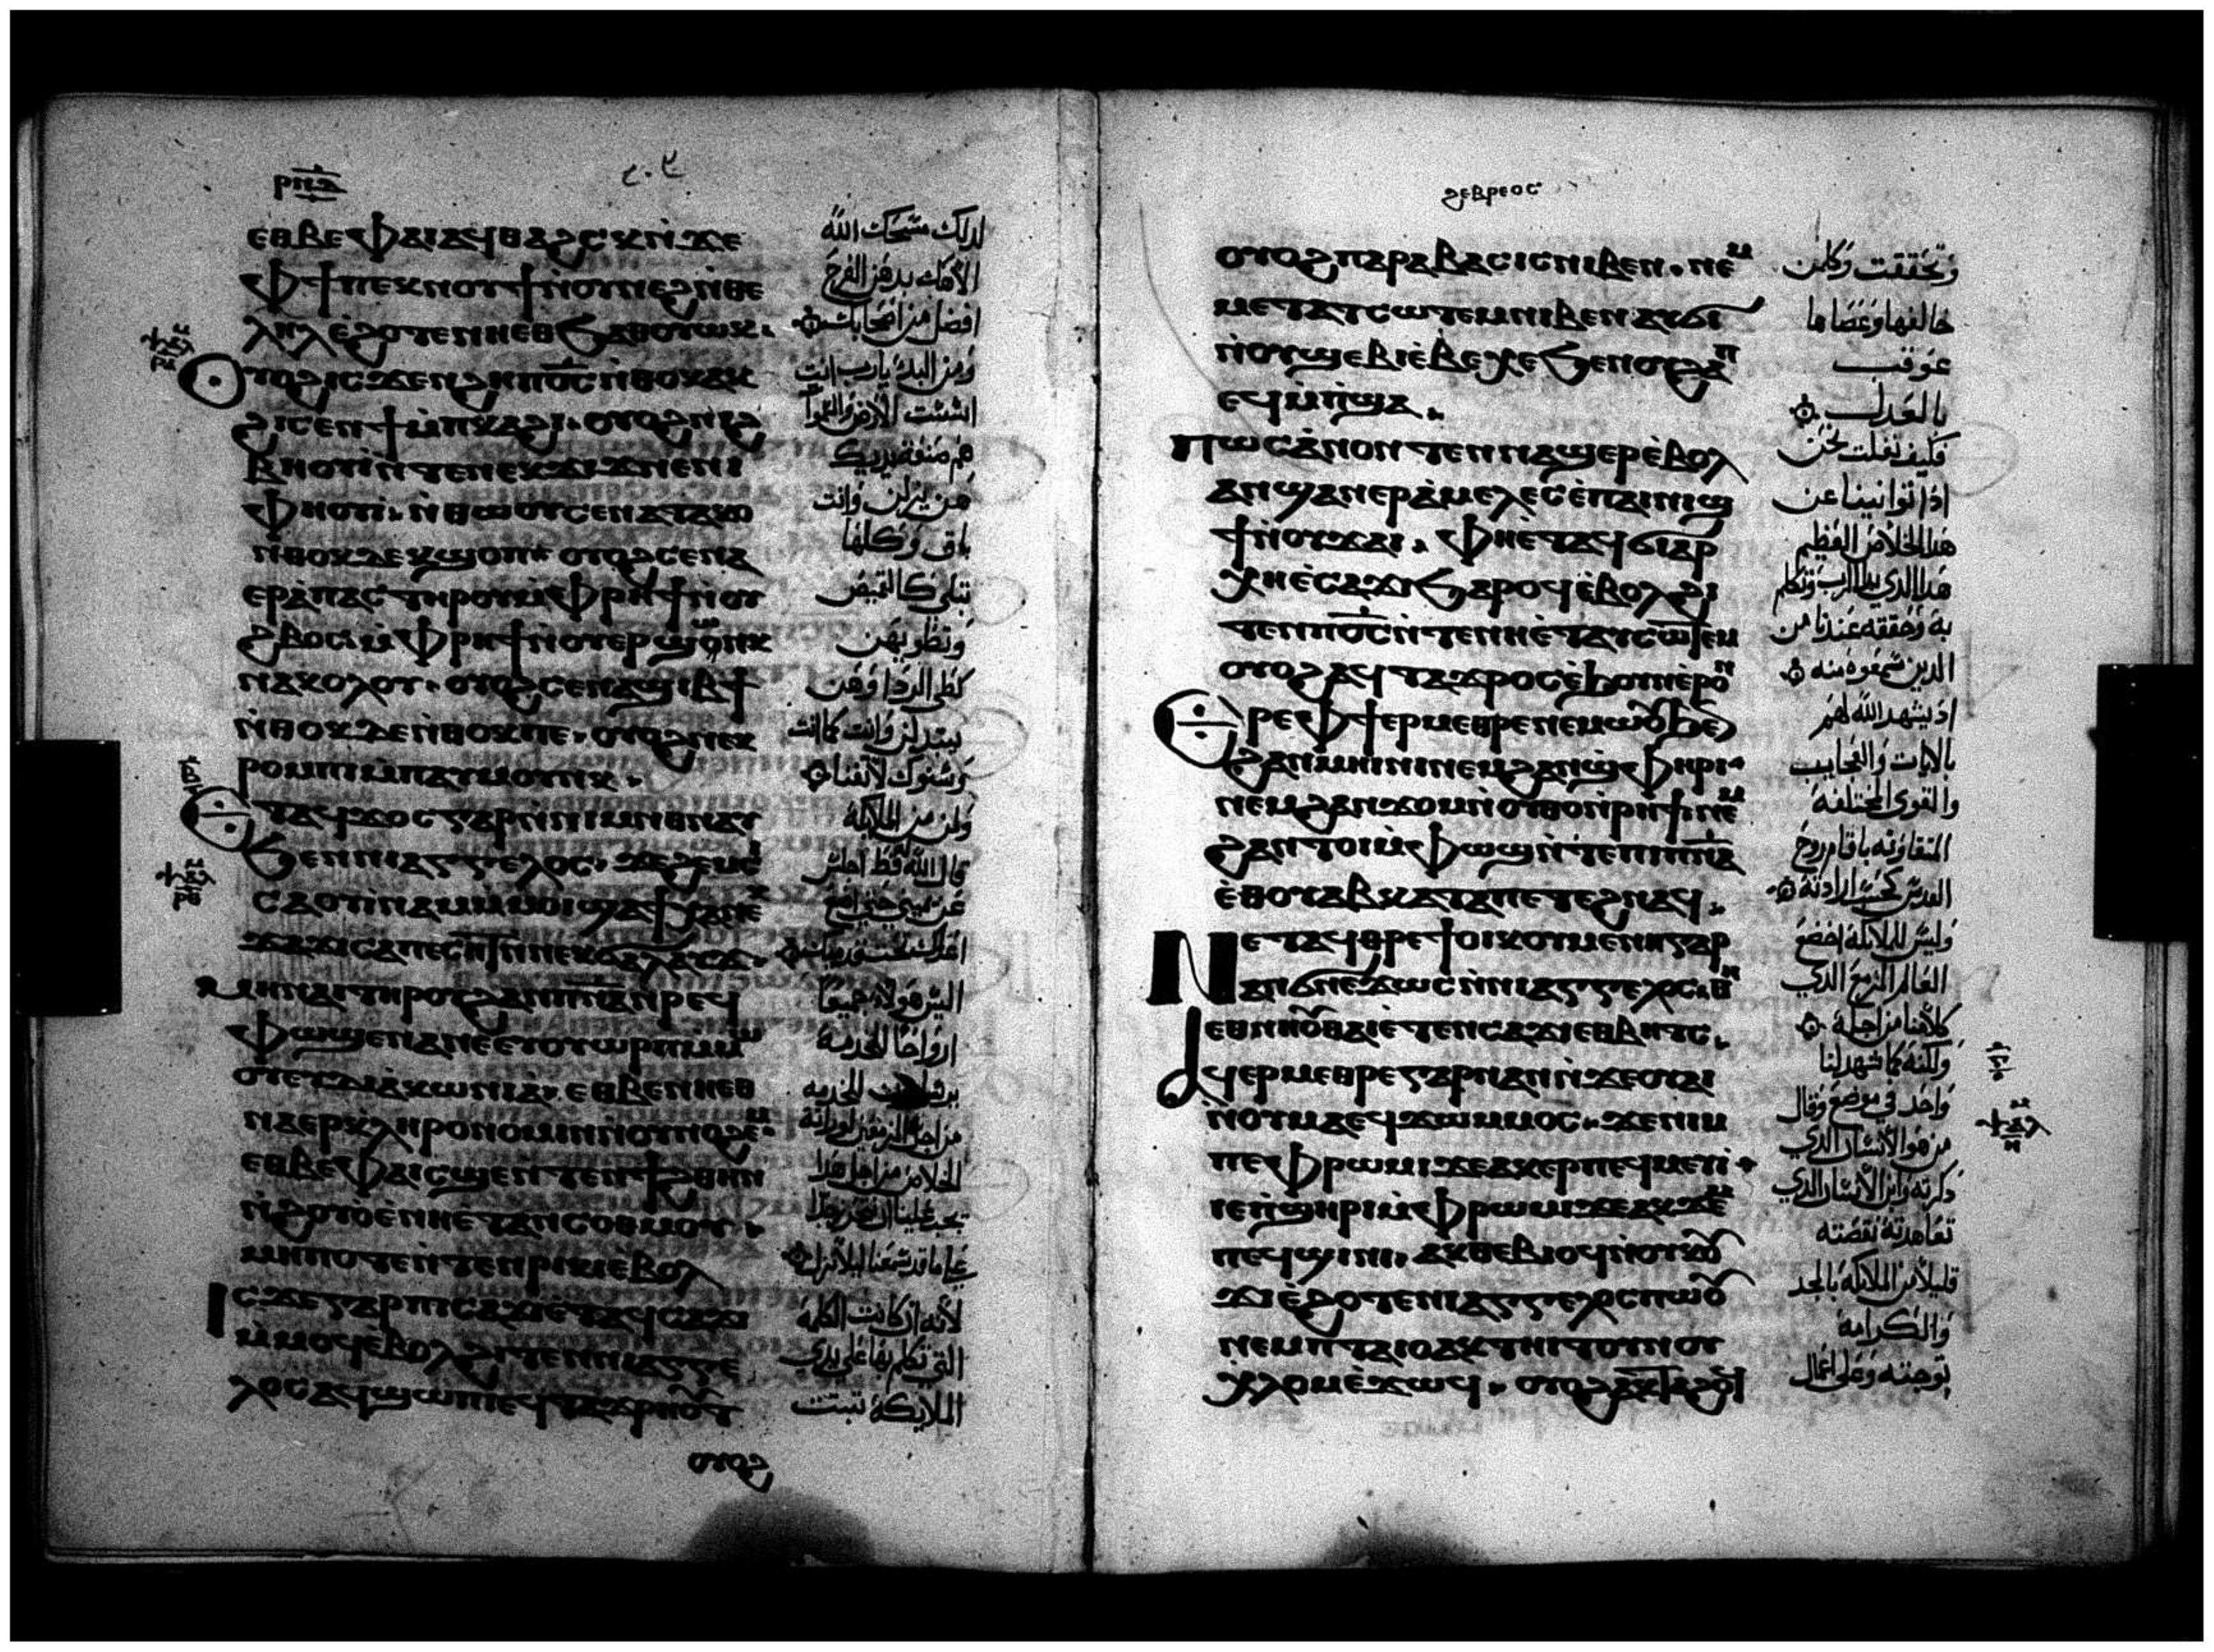 ⲣⲡⲃ
ⲉⲑⲃⲉⲫⲁⲓⲁϥⲑⲁϩⲥⲕⲛ̀ϫⲉ
ⲫϯⲡⲉⲕⲛⲟⲩϯⲛ̀ⲟⲩⲛⲉϩⲛ̀ⲑⲉ
ⲗⲏⲗⲉ̀ϩⲟⲧⲉⲛⲏⲉⲑϧⲁⲑⲟⲩⲱⲕ.
ⲩⲟϩⲓⲥϫⲉⲛϩⲏⲡⲟ̅ⲥ̅ⲛ̀ⲑⲟⲕⲁⲕ
ϩⲓⲥⲉⲛϯⲙ̀ⲡⲕⲁϩⲓ. ⲟⲩⲟϩⲛⲓϩ
ⲃⲏⲟⲩⲓ̀ⲛ̀ⲧⲉⲛⲉⲕϫⲓϫⲛⲉⲛⲓ
ⲫⲏⲟⲩⲓ̀. ⲛ̀ⲑⲱⲟⲩⲥⲉⲛⲁⲧⲁⲕⲟ
ⲛⲑⲟⲕⲇⲉⲕϣⲟⲡ ⲟⲩⲟϩⲥⲉⲛⲁ
ⲉⲣⲁ̀ⲡⲁⲥⲧⲏⲣⲟⲩⲙ̀ⲫⲣⲏϯⲛ̀ⲟⲩ
ϩⲃⲟⲥⲙ̀ⲫⲣⲏϯⲛ̀ⲟⲩⲉⲣϣⲱⲛⲕ
ⲛⲁⲕⲟⲗⲟⲩ. ⲟⲩⲟϩⲥⲉⲛⲁϣⲓⲃϯ
ⲛ̀ⲑⲟⲕⲇⲉⲛ̀ⲑⲟⲕⲡⲉ. ⲟⲩⲟϩⲛⲉⲕ
ⲣⲟⲙⲡⲓⲙ̀ⲡⲁⲩⲙⲟⲩⲛⲕ.
ⲧⲁϥϫⲟⲥⲅⲁⲣⲛ̀ⲛⲓⲙⲛ̀ⲑⲛⲁⲩ
ϧⲉⲛⲛⲓⲁⲅⲅⲉⲗⲟⲥ. ϫⲉϩⲉⲙⲥⲓ
ⲥⲁⲟⲩⲓ̀ⲛⲁⲙⲙ̀ⲙⲟⲓϣⲁϯⲭⲁⲛⲉⲕ
ϫⲁϫⲓⲥⲁⲡⲉⲥⲏⲧⲛ̀ⲛⲉⲕϭⲁⲗⲁⲩϫ.
ⲙⲏⲛⲁⲓⲧⲏⲣⲟⲩϩⲁⲛⲡ̅ⲛ̅ⲁ̅ⲛ̀ⲣⲉϥ
ⲫⲱϣⲉⲛⲁⲛⲉⲉⲩⲟⲩⲱⲣⲡⲙ̀ⲙⲱ
ⲟⲩⲉⲩⲇⲓⲁⲕⲱⲛⲓⲁ. ⲉⲑⲃⲉⲛⲏⲉⲑ
ⲛⲁⲉⲣⲕⲗⲏⲣⲟⲛⲟⲙⲓⲛ̀ⲟⲩⲛⲟϩⲉⲙ
ⲉⲑⲃⲉⲫⲁⲓⲥϣⲉⲛ̀ⲧⲉⲛϯϩⲑⲏⲛ
ⲛ̀ϩⲟⲩⲟ̀ⲉ̀ⲛⲏⲉ̀ⲧⲁⲛⲥⲟⲑⲙⲟⲩ.
ⲙⲏⲡⲟⲧⲉⲛ̀ⲧⲉⲛⲣⲓⲕⲓⲉ̀ⲃⲟⲗ
ⲓⲥϫⲉⲅⲁⲣⲡⲓⲥⲁϫⲓⲉ̀ⲧⲁϥⲥⲁϫⲓ
ⲙ̀ⲙⲟϥⲉⲃⲟⲗϩⲓⲧⲉⲛⲛⲓⲁⲅⲅⲉ
ⲗⲟⲥⲁϥϣⲱⲡⲓⲉϥⲧⲁϫⲣⲏⲟⲩⲧ
ⲟⲩⲟϩ
لذلك مسحك الله
الاهك بدهن الفرح
افضل من اصحابك
ومن البدء يارب انت
اسست الارض والسموات
هم صنعة يديك
هن يزلن وانت
باق وكلها
تبلى كالقميص
وتطويهن
كطى الردا وهن
يتبدلن وانت كما انت
وسنوك لا تفنا
ولمن من الملايكة
قال الله قط اجلس
عن يميني حتى اضع
اعداك تحت قدميك
اليس هولاء جميعا
ارواحا للخدمة
للخدمه
الخلاص من اجل هذا
لانه ان كانت الكلمة
التي تكلم بها على يدي
الملايكة تبتت
ϩⲉⲃⲣⲉⲟⲥ
ⲟⲩⲟϩⲡⲁⲣⲁⲃⲁⲥⲓⲥⲛⲓⲃⲉⲛ. ⲛⲉⲙ
ⲙⲉⲧⲁⲧⲥⲱⲧⲉⲙⲛⲓⲃⲉⲛⲁⲩϭⲓ
ⲛ̀ⲟⲩϣⲉⲃⲓⲉ̀ⲃⲉⲭⲉϧⲉⲛⲟⲩϩⲁⲡ
ⲉϥⲙ̀ⲡϣⲁ.
ⲡⲱⲥⲁ̀ⲛⲟⲛⲧⲉⲛⲛⲁϣⲉⲣⲉ̀ⲃⲟⲗ
ⲁⲛϣⲁⲛⲉⲣⲁ̀ⲙⲉⲗⲉⲥⲉ̀ⲡⲁⲓⲛⲓϣ
ϯⲛ̀ⲟⲩϫⲁⲓ. ⲫⲏⲉ̀ⲧⲁϥϭⲓⲁⲣ
ⲭⲏⲉ̀ⲥⲁϫⲓϧⲁⲣⲟϥⲉ̀ⲃⲟⲗϩⲓ
ⲧⲉⲛⲡⲟ̅ⲥ̅ⲛ̀ⲧⲉⲛⲛⲏⲉ̀ⲧⲁⲩⲥⲱⲧⲉⲙ
ⲟⲩⲟϩⲁϥⲧⲁϫⲣⲟⲥⲉ̀ϧⲟⲩⲛⲉ̀ⲣⲟⲛ
ⲉⲣⲉⲫϯⲉⲣⲙⲉⲑⲣⲉⲛⲉⲙⲱⲟⲩϧⲉⲛ
ϩⲁⲛⲙⲏⲓⲛⲓⲛⲉⲙϩⲁⲛϣⲫⲏⲣⲓ.
ⲛⲉⲙϩⲁⲛϫⲟⲙⲛ̀ⲟⲩⲑⲟⲛ̀ⲣⲏϯⲛⲉⲙ
ϩⲁⲛⲧⲟⲓⲙ̀ⲫⲱϣⲛ̀ⲧⲉⲡⲓⲡ̅ⲛ̅ⲁ̅
ⲉⲑⲟⲩⲁⲃⲕⲁⲧⲁⲡⲉⲧⲉϩⲛⲁϥ.
ⲛⲉⲧⲁϥⲑⲣⲉϯⲟⲓⲕⲟⲩⲙⲉⲛⲏⲅⲁⲣ
ⲁⲛϭⲛⲉϫⲱⲥⲛ̀ⲛⲓⲁⲅⲅⲉⲗⲟⲥ.ⲑⲏ
ⲉⲑⲛⲏⲟⲩⲑⲁⲓⲉ̀ⲧⲉⲛⲥⲁϫⲓⲉⲑⲃⲏⲧⲥ.
ⲁϥⲉⲣⲙⲉⲑⲣⲉⲅⲁⲣⲛⲁⲛⲛ̀ϫⲉⲟⲩⲁⲓ
ⲛ̀ⲟⲩⲙⲁⲉϥϫⲱⲙⲙⲟⲥ. ϫⲉⲛⲓⲙ
ⲡⲉⲫⲣⲱⲙⲓϫⲉⲁⲕⲉⲣⲡⲉϥⲙⲉⲩⲓ̀.
ⲓⲉⲡ̀ϣⲏⲣⲓⲙ̀ⲫⲣⲱⲙⲓϫⲉⲁⲕϫⲉⲙ
ⲡⲉϥϣⲓⲛⲓ. ⲁⲕⲑⲉⲃⲓⲟϥⲛ̀ⲟⲩⲕⲟⲩ
ϫⲓⲉ̀ϩⲟⲧⲉⲛⲓⲁⲅⲅⲉⲗⲟⲥⲡⲱⲟⲩ
ⲛⲉⲙⲡⲧⲁⲓⲟⲁⲕⲧⲏⲓⲧⲟⲩⲛⲟⲩ
ⲭⲗⲟⲙⲉ̀ϫⲱϥ. ⲟⲩⲟϩⲁⲕⲧⲁϩⲟϥ
وتحققت وكلمن
خالفها وعصاها
عوقب
بالعدل
فكيف نفلت نحن
اذا توانينا عن
هذا الخلاص العظيم
هذا الذي بدا الرب وتكلم
به وحققه عندنا من
الذين سمعوه منه
اذ يشهد الله لهم
بالايات والعجايب
والقوى المختلفة
القدس كحسب ارادته
وليس للملايكة اخضع
العالم المزمع الذي
كلامنا من اجله
ولكنه كما شهد لنا
واحد في موضع وقال
من هو الانسان الذي
ذكرته وابن الانسان الذي
تعاهدته نقصته
قليلا من الملايكة بالمجد
والكرامة
توجته وعلى اعمال